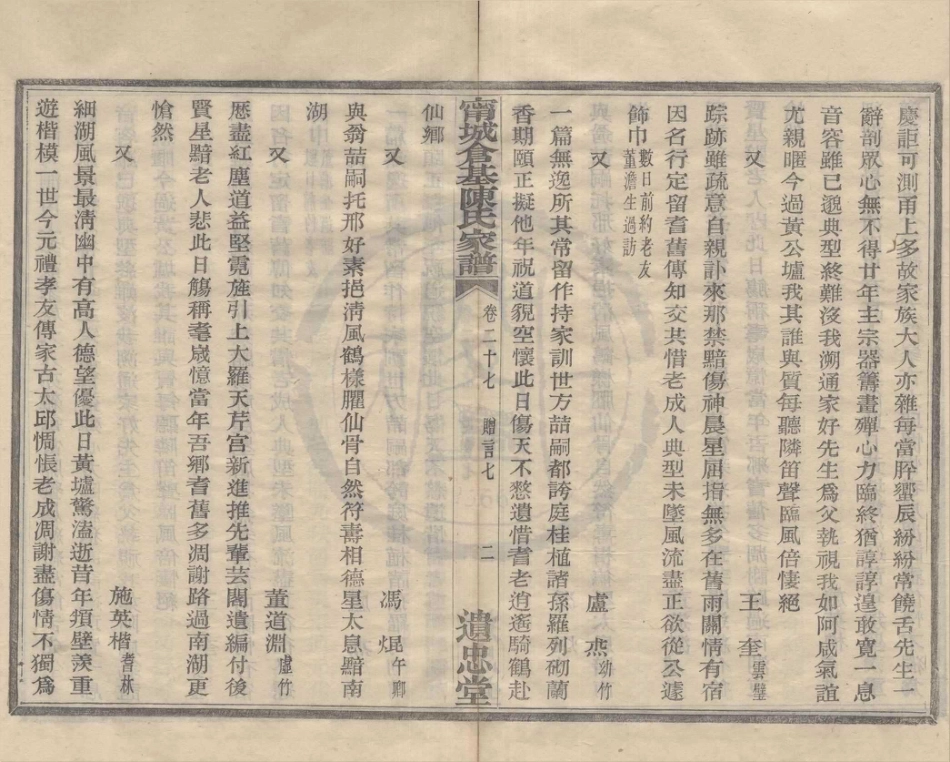 慶詎可測甬上多故家族大人亦雜每當胖蠁辰紛紛常饒舌先生一
辭剖眾心無不得廿年主宗器籌畫殫心力臨終猶諄諄遑敢寬一息
音容雖已邈典型終難沒我溯通家好先生爲父執視我如阿咸氣誼
尤親暱今過黃公壚我其誰與質每聽隣笛聲臨風倍悽絕
又 王奎雲璧
踪跡雖疏意自親訃來那禁黯傷神晨星屈指無多在舊雨關情有宿
因名行定留耆舊傳知交共惜老成人典型未墜風流盡正欲從公遽
飾巾數日前約老友董澹生過訪
又 盧杰幼竹
一篇無逸所其常留作持家訓世方喆嗣都誇庭桂植諸孫羅列砌蘭
香期頤正擬他年祝道貌空懷此日傷天不憗遺惜耆老逍遙騎鶴赴
仙鄉
甯城倉基陳氏家譜 卷二十七 贈言七 二 遺忠堂
又 馮焜午卿
與翁喆嗣托邢好素挹淸風鶴樣臞仙骨自然符壽相德星太息黯南
湖
又 董道淵虛竹
歷盡紅塵道益堅霓旌引上大羅天芹宮新進推先輩芸閣遺編付後
賢星黯老人悲此日觴稱耄歲憶當年吾鄉耆舊多凋謝路過南湖更
愴然
又 施英楷耆林
細湖風景最淸幽中有高人德望優此日黃壚驚溘逝昔年頖壁羨重
遊楷模一世今元禮孝友傳家古太邱惆悵老成凋謝盡傷情不獨爲